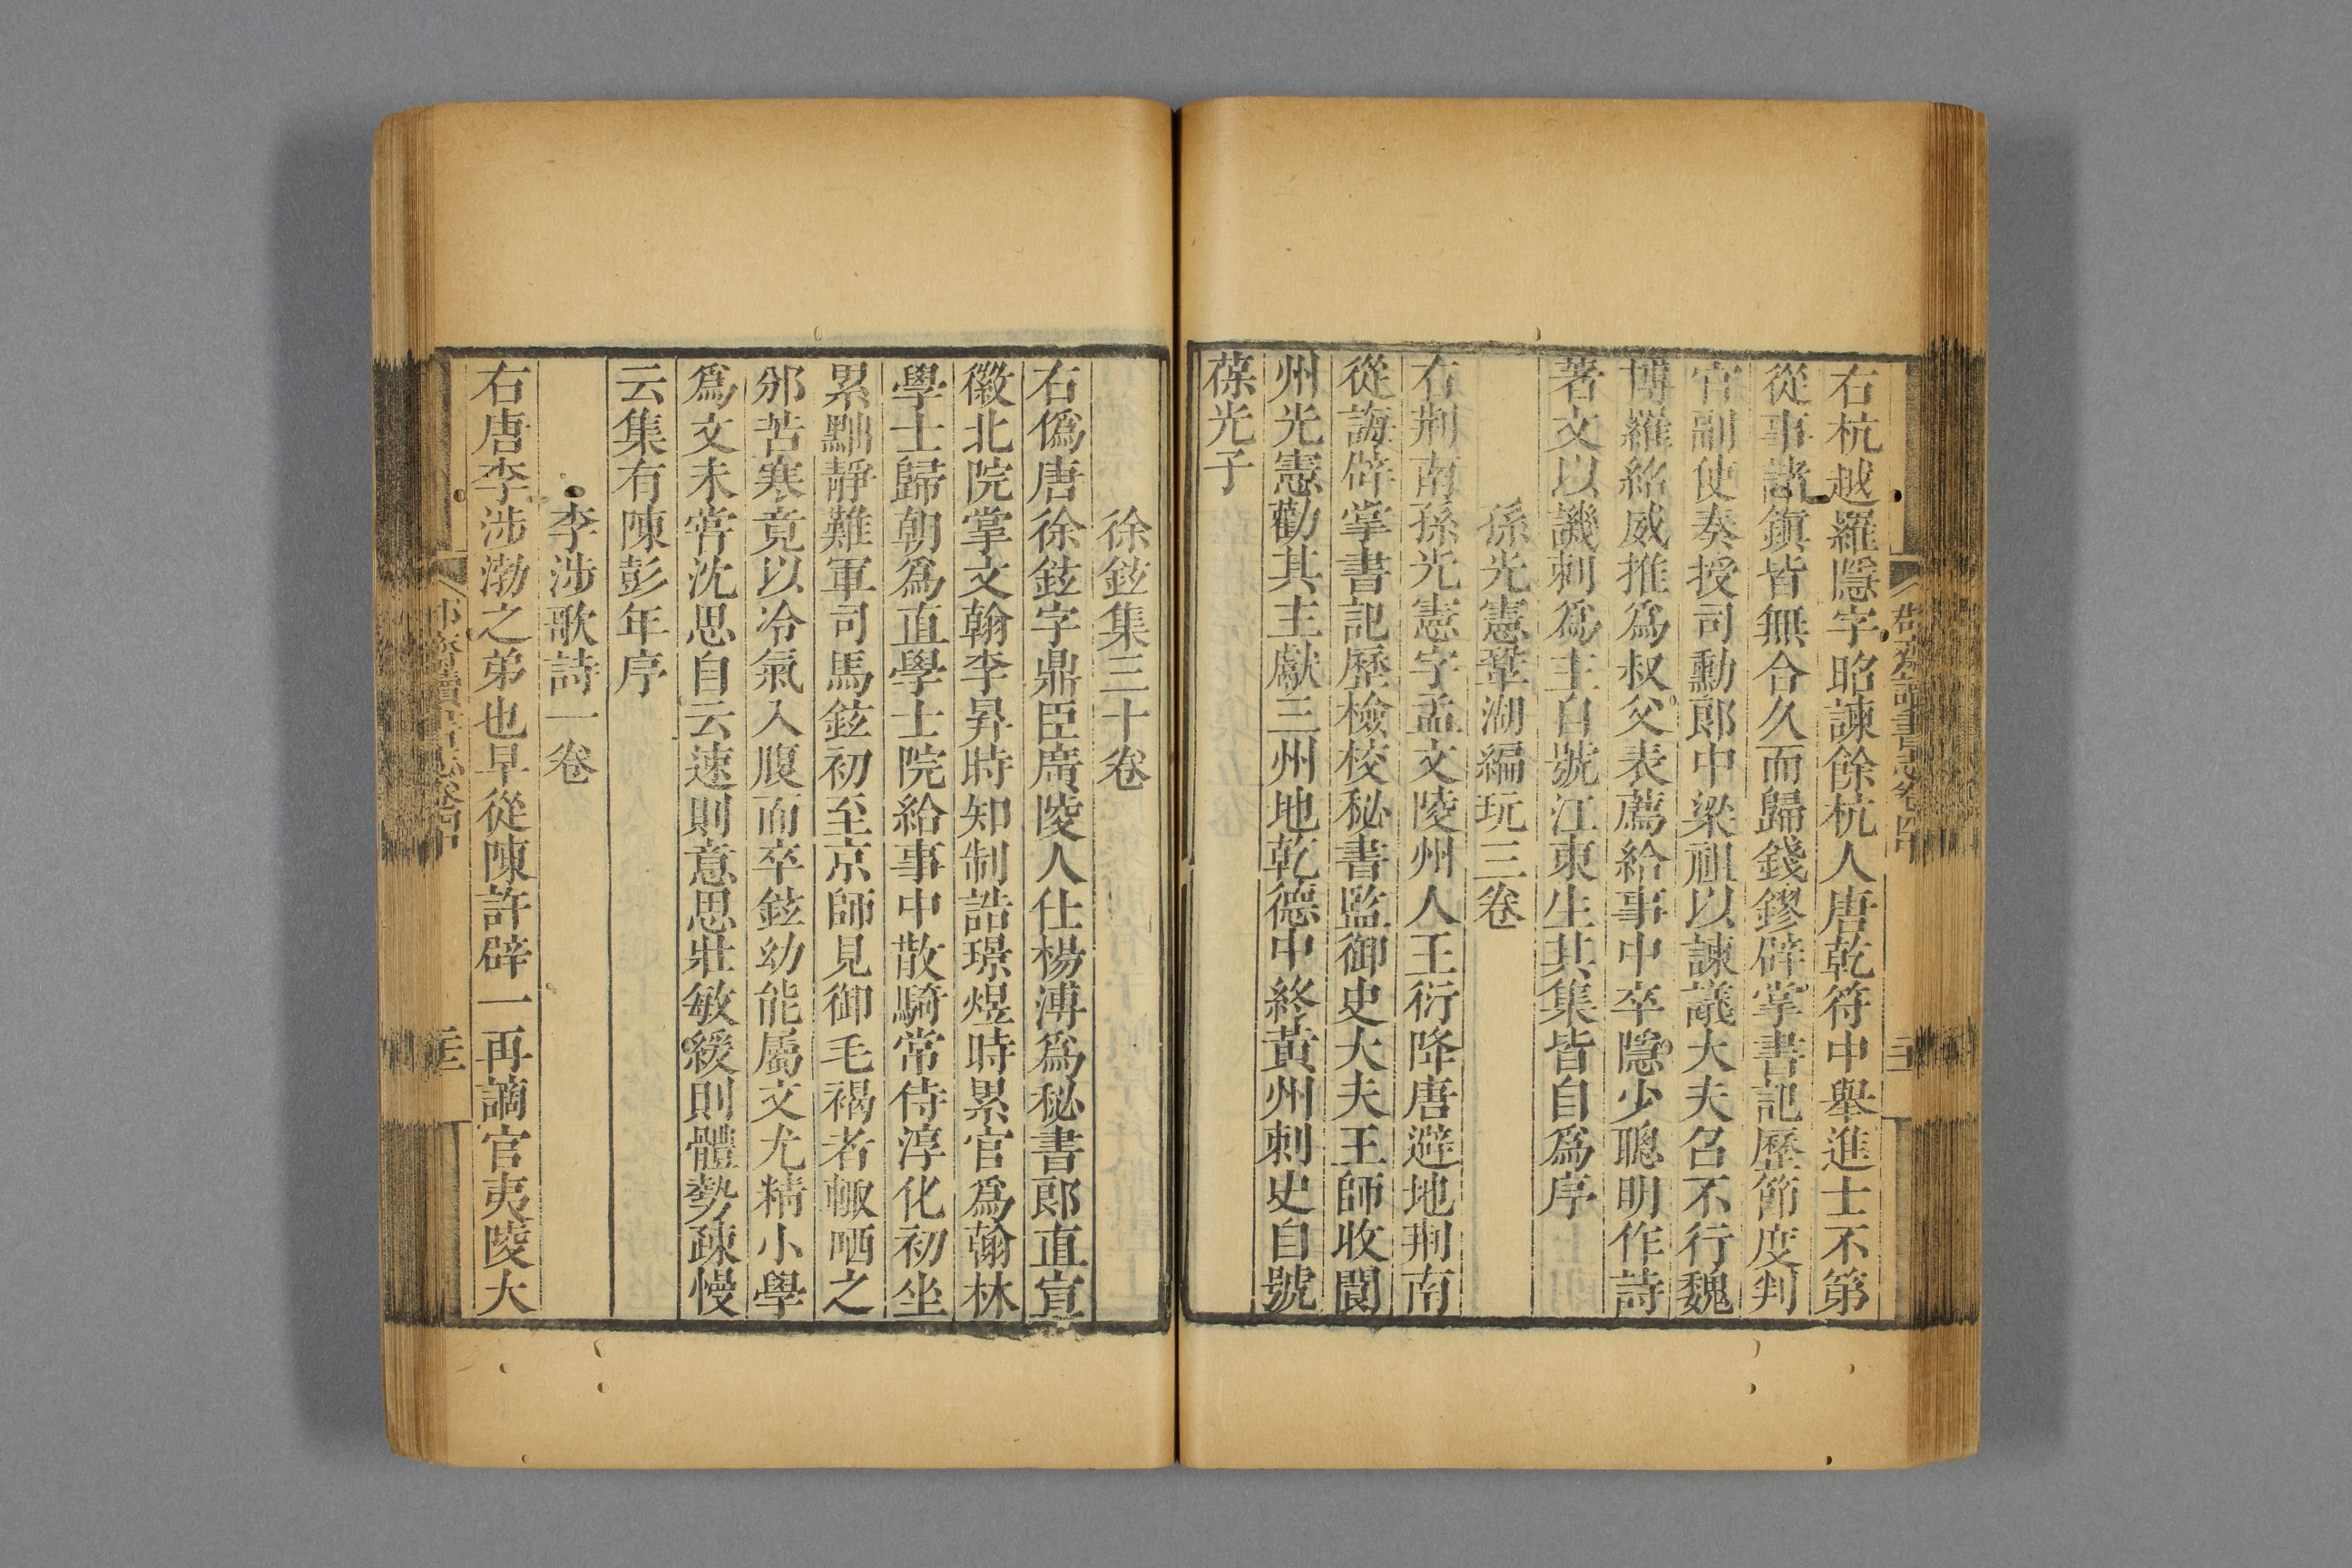 右杭越羅隱字昭諫餘杭人唐乾符中舉進士不第
從事諸鎮皆無合久而歸錢鏐辟掌書記歷節度判
官副使奏授司勳郎中梁祖以諫議大夫召不行魏
博羅紹威推爲叔父表薦給事中卒隱少聰明作詩
著文以譏刺爲主自號江東生其集皆自爲序
孫光憲鞏湖編玩三卷
右荆南孫光憲字孟文陵州人王衍降唐避地荆南
從誨辟掌書記歷檢校秘書監御史大夫王師收閬
州光憲勸其主獻三州地乾德中終黃州刺史自號
葆光子
徐鉉集三十卷
右僞唐徐鉉字鼎臣廣陵人仕楊溥爲秘書郎直宣
徽北院掌文翰李昇時知制誥璟煜時累官爲翰林
學士歸朝爲直學士院給事中散騎常侍淳化初坐
累黜靜難軍司馬鉉初至京師見御毛褐者輒哂之
邠苦寒竟以冷氣入腹而卒鉉幼能屬文尤精小學
爲文未嘗沈思自云速則意思壯敏緩則體勢疎慢
云集有陳彭年序
李涉歌詩一卷
右唐李涉渤之弟也早從陳許辟一再謫官夷陵大